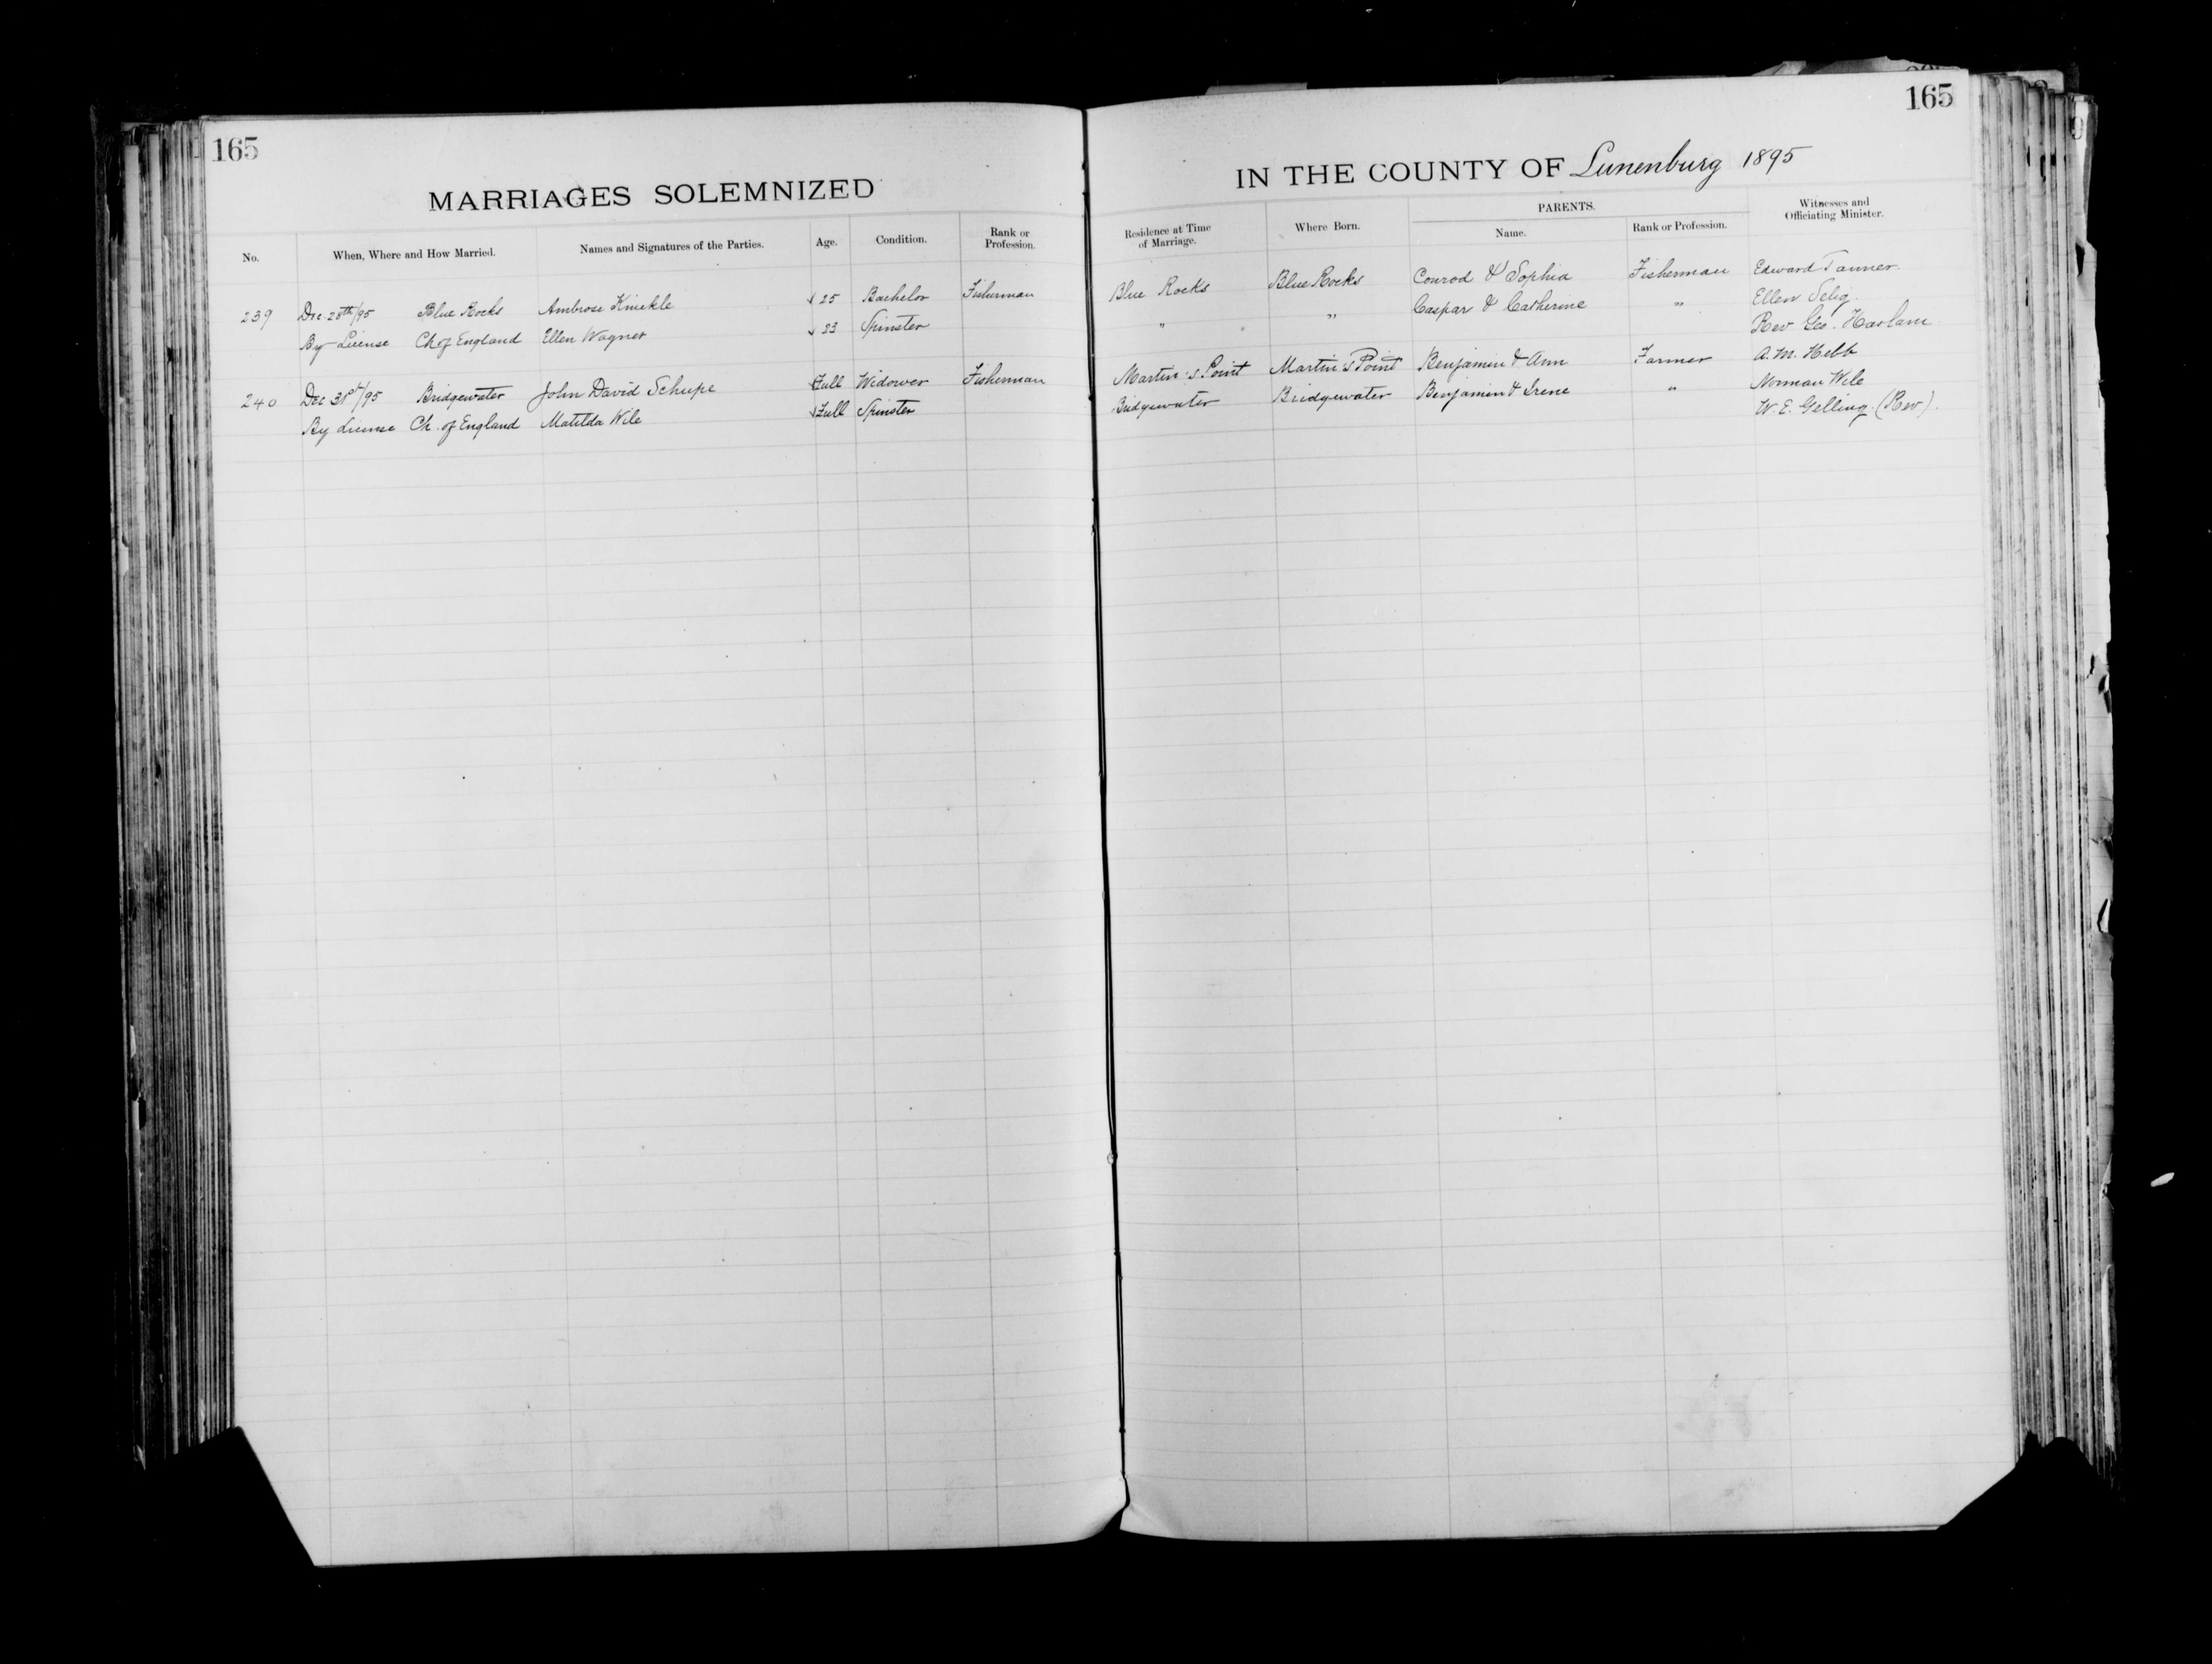 165
MARRIAGES SOLEMNIZED
No. When, Where and How Married. Names and Signatures of the Parties. Age. Condition. Rank or Profession.
239 Dec. 28th/95 Blue Rocks Ambrose Knickle 25 Bachelor Fisherman
By License Ch of England Ellen Wagner 23 Spinster
240 Dec 31st/95 Bridgewater John David Schupe Full Widower Fisherman
By License Ch. of England Matilda Wile Full Spinster
165
IN THE COUNTY OF Lunenburg 1895
Residence at Time of Marriage. Where Born. PARENTS. Name. Rank or Profession. Witnesses and Officiating Minister.
Blue Rocks Blue Rocks Conrod & Sophia Fisherman Edward Tanner.
" " Caspar & Catherine " Ellen Selig.
Rev Geo. Haslam
Martin's Point Martin's Point Benjamin & Ann Farmer A. M. Hebb
Bridgewater Bridgewater Benjamin & Irene " Norman Wile
W. E. Gelling (Rev).